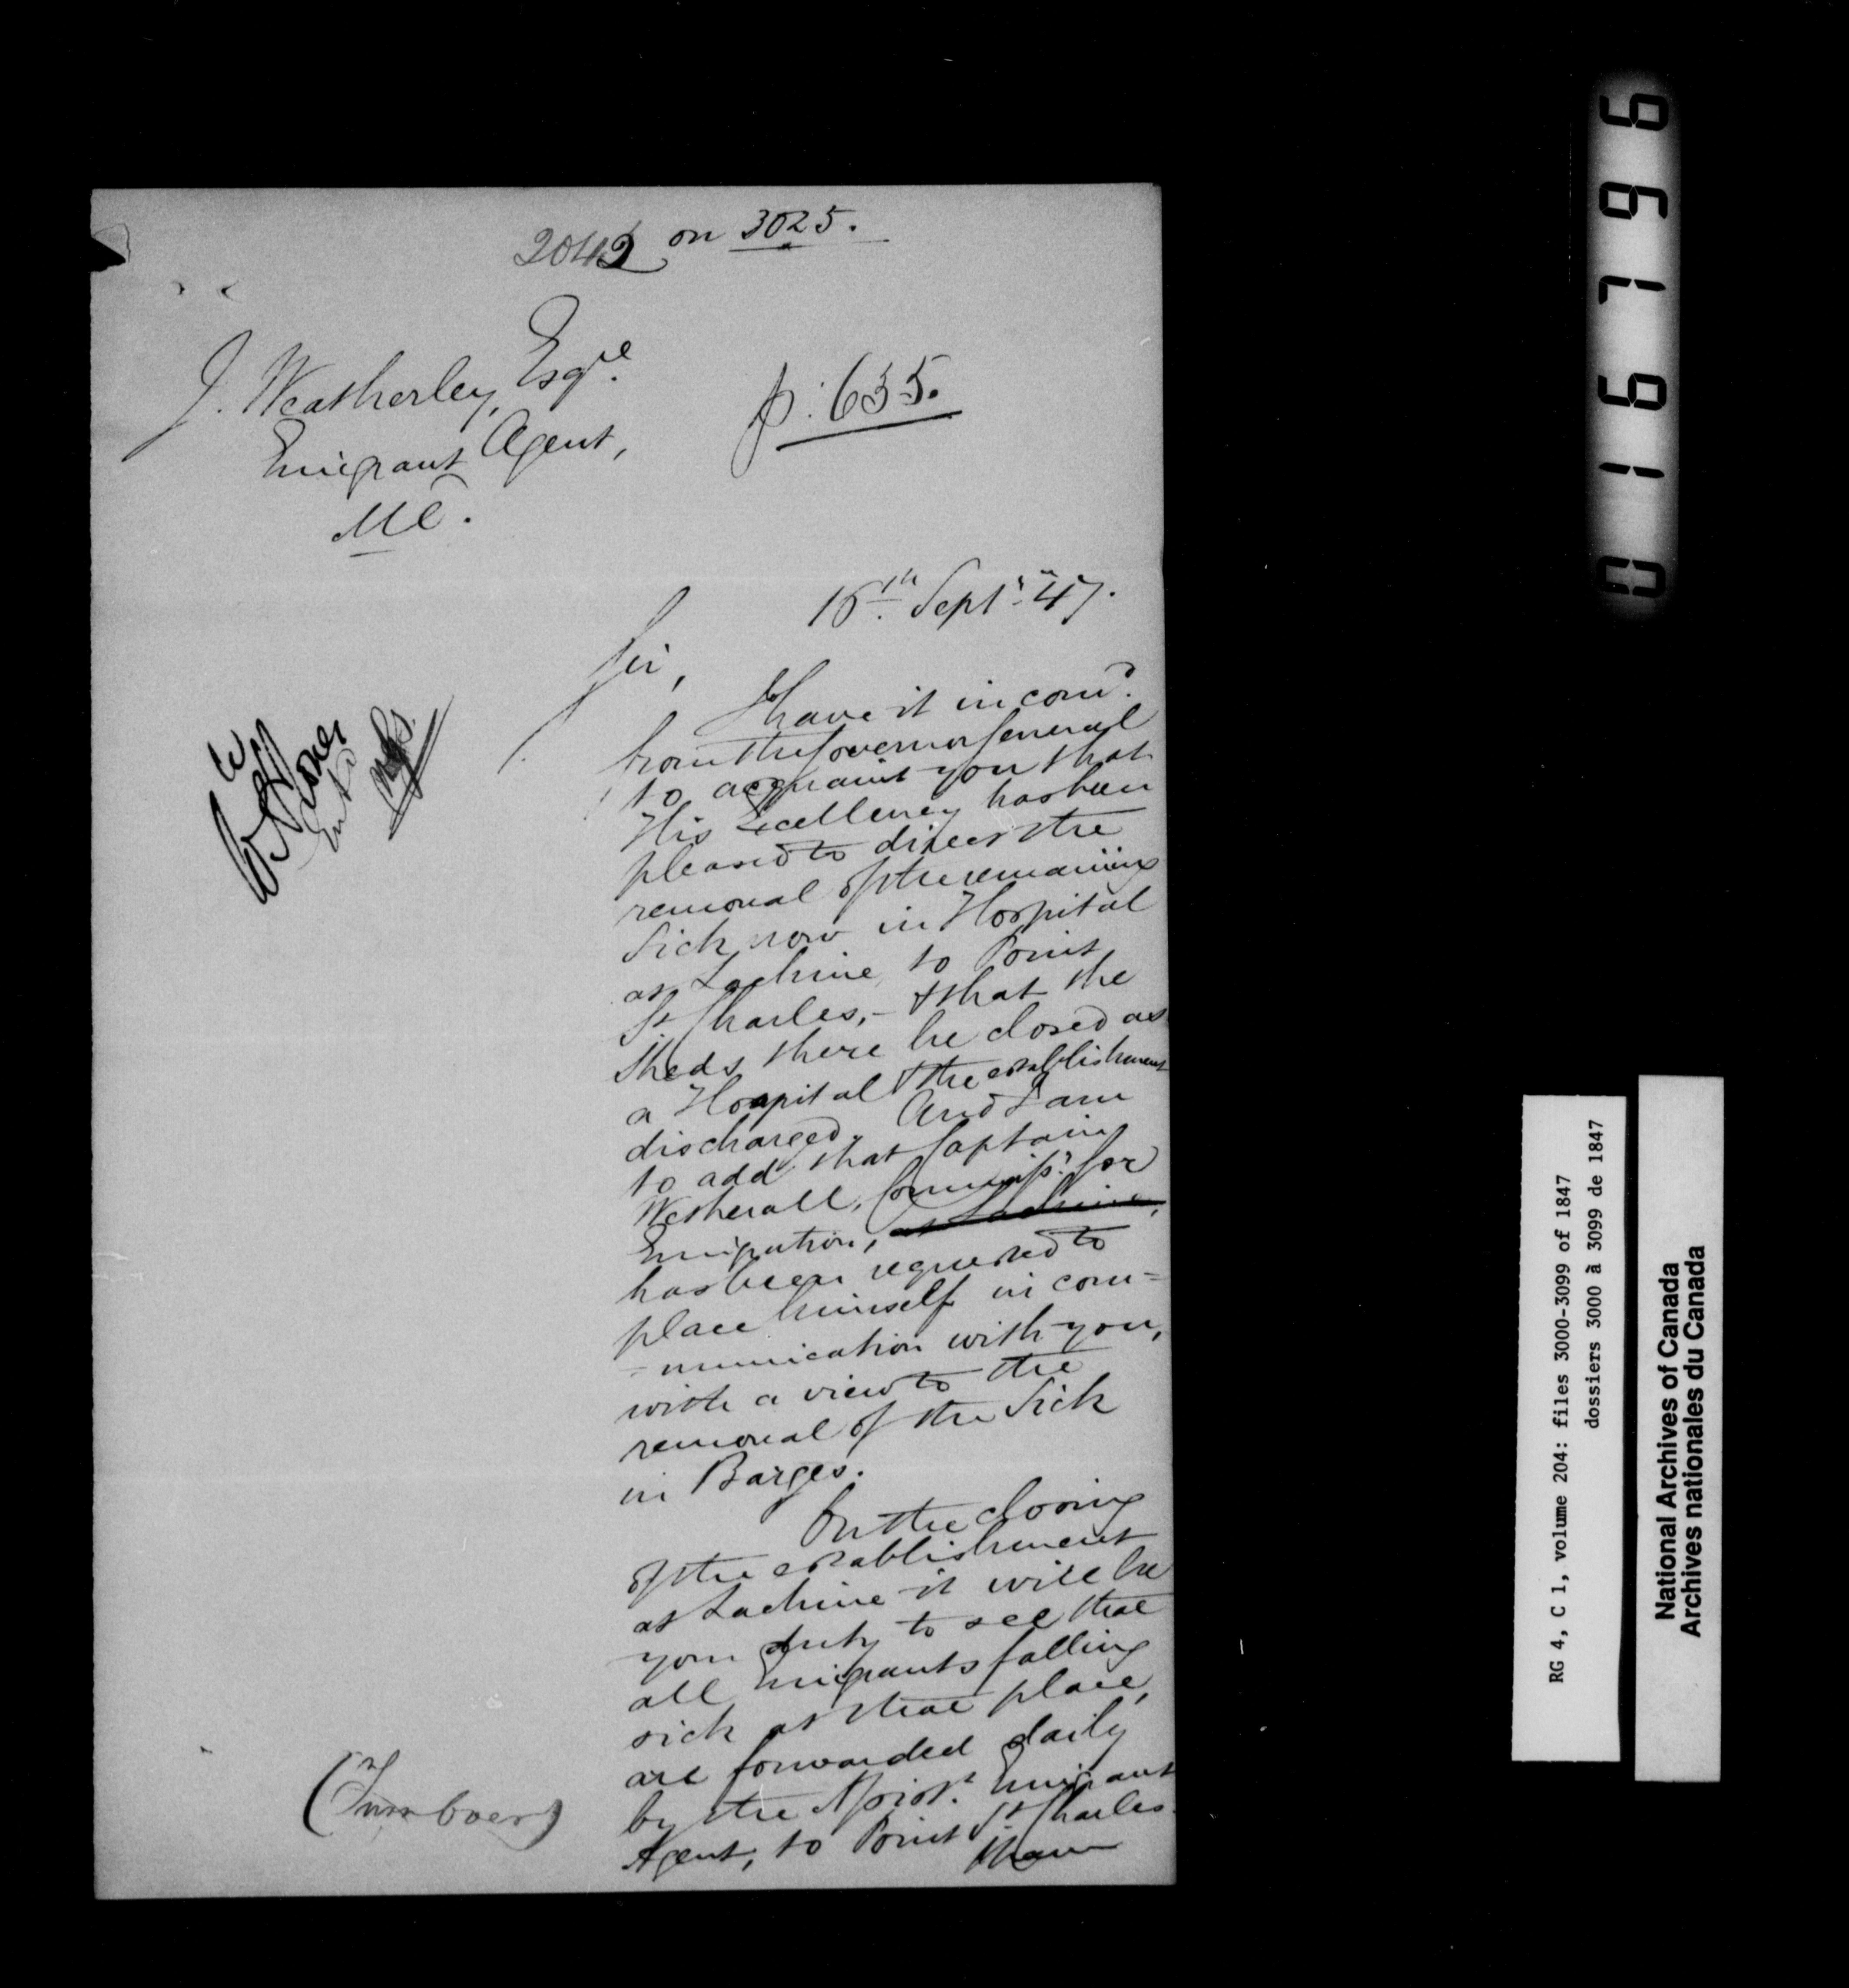 2042 on 3025.
J. Weatherley, Esqre.
Emigrant Agent,
Ml.
p: 635.
16th. Septr. "47.
Sir,
I have it in comd.
from the Governor General
to acquaint you that
His Excellency has been
pleased to direct the
removal of the remaining
Sick now in Hospital
at Lachine, to Point
St. Charles, - & that the
Sheds there be closed as
a Hospital & the establishment
discharged. And I am
to add that Captain
Wetherall, Commissr. for
Emigration, at Lachine,
has been requested to
place himself in com=
=munication with you,
with a view to the
removal of the Sick
in Barges.
On the closing
of the establishment
at Lachine it will be
your duty to see that
all Emigrants falling
sick at that place,
are forwarded daily
by the Assist. Emigrant
Agent, to Point St. Charles.
I have
(Turn over)
016796
RG 4, C 1, volume 204: files 3000-3099 of 1847
dossiers 3000 à 3099 de 1847
National Archives of Canada
Archives nationales du Canada